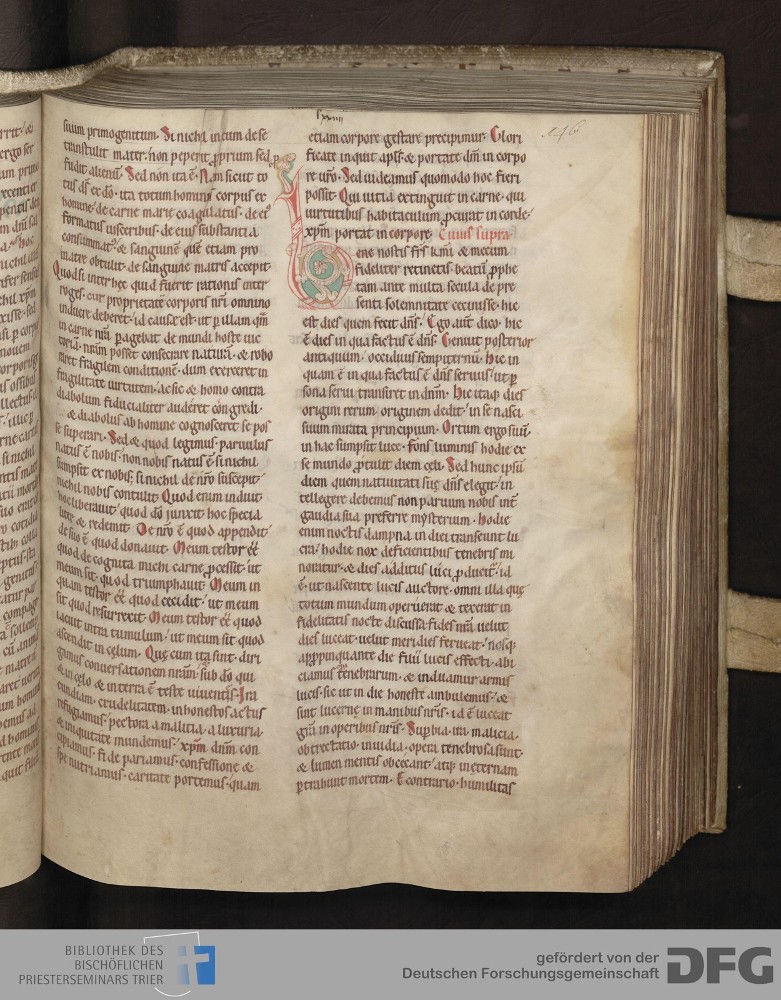 lxxiiii
146
suum primogenitum. Si nichil in eum de se
transtulit mater, non peperit proprium sed
fudit alienum. Sed non ita ē. Nam sicut to
tus dſ ex dō, ita totum hominis corpus ex
homine, de carne marie coagulatus, de eiꝰ
formatus visceribus, de eius substantia
consummatꝰ, & sanguinē quē etiam pro
mater obtulit, de sanguine matris accepit.
Quod si inter hęc quid fuerit rationis inter
roges, cur proprietatē corporis nri omnino
induere deberet, id causę est, ut p illam qm̄
in carne nrā pagebat de mundi hoste vic
toriā, nram posset consecrare naturā, & robo
raret fragilem conditionē, dum exerceret in
fragilitate virtutem, ac sic & homo contra
diabolum fiducialiter auderet congredi,
& diabolus ab homine cognosceret se pos
se superari. Sed & quod legimus, parvulus
natus ē nobis, non nobis natus ē, si nichil
sumpsit ex nobis, si nichil de nrō suscepit,
nichil nobis contulit. Quod enim induit,
hoc liberavit, quod dō junxit, hoc specia
liter & redemit. De nrō ē quod appendit,
de suo ē quod donavit. Meum testor eē
quod de cognita michi carne pcessit, ut
meum sit, quod triumphavit. Meum in
quam testor eē quod cecidit, ut meum
sit quod resurrexit. Meum testor eē quod
iacuit intra tumulum, ut meum sit quod
ascendit in cęlum. Quę cum ita sint, diri
gamus conversationem nram, sub dō qui
& in cęlo & in terra ē teste viventis. Ira
cundiam, crudelitatem, inhonestos actus
refugiamus, pectora a malitia, a luxuria,
& iniquitate mundemus, xpm dnm con
cipiamus, fide pariamus, confessione &
spe nutriamus, caritate portemus, quam
etiam corpore gestare precipimur. Glori
ficate inquit aptſ & portate dm in corpo
re vrō. Sed videamus quomodo hoc fieri
possit. Qui vitia extinguit in carne, qui
virtutibus habitaculum pcurat in corde,
xpm portat in corpore. Cuius supra.
Bene nostis frs kmi & mecum
fideliter retinetis, beatū pphe
tam ante multa secula de pre
senti solemnitate cecinisse, hic
est dies quem fecit dns. Ego aut dico, hic
ē dies in qua factus ē dns. Genuit posterior
antiquum, occiduus sempiternū. Hic in
quam ē in qua factus ē dns servus, ut p
sona servi transiret in dnm. Hic itaq dies
origini rerum originem dedit, in se nasci
suum mirata principium. Ortum ergo suū
in hac sumpsit luce, fons luminis hodie ex
se mundo ptulit diem cęli. Sed hunc ipsū
diem quem nativitati suę dns elegit, in
tellegere debemus non parvum nobis int
gaudia sua preferre mysterium. Hodie
enim noctis dampna in diei transeunt lu
cra, hodie nox deficientibus tenebris mi
noratur, & dies additus luci pducit, id
ē, ut nascente lucis auctore, omni illa quę
totum mundum operuerat & texerat in
fidelitatis nocte discussa, fides nrā velut
dies luceat, velut meridies ferveat, nosq
appinquante die filii lucis effecti, abi
ciamus tenebrarum, & induamur armis
lucis, sic ut in die honeste ambulemus, &
sint lucernę in manibus nris, id ē luceat
grā in operibus nris. Supbia, ira, malicia,
obtrectatio, invidia, opera tenebrosa sunt,
& lumen mentis obcecant, atq in ęternam
ptrahunt mortem. E contrario, humilitas
BIBLIOTHEK DES
BISCHÖFLICHEN
PRIESTERSEMINARS TRIER
gefördert von der
Deutschen Forschungsgemeinschaft
DFG